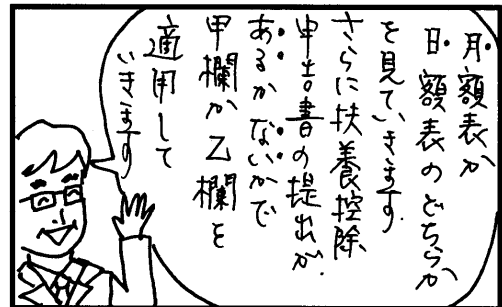 月額表か
日額表のどちらか
を見ていきます
さらに扶養控除
申告書の提出が
あるかないかで
甲欄か乙欄を
適用して
いきます